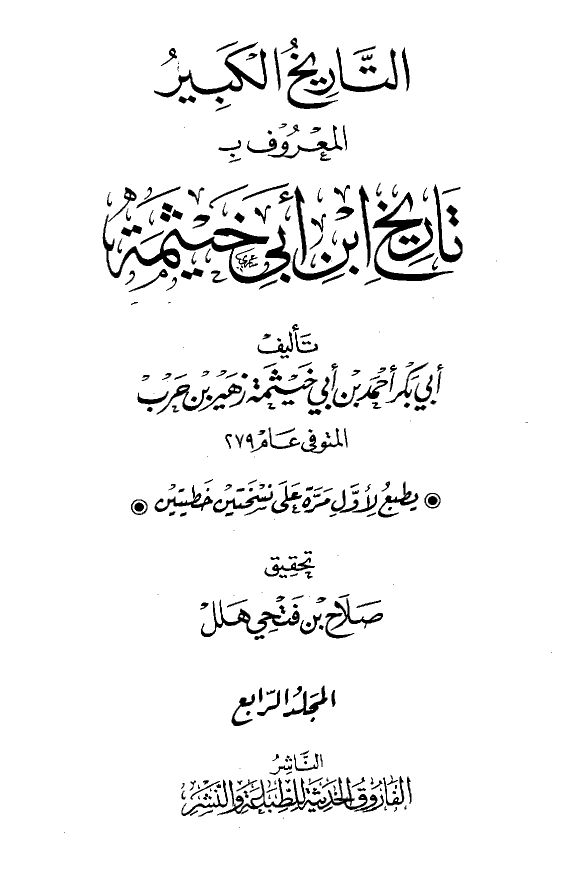 التَّارِيخُ الكَبِيرُ
المَعْرُوف بِـ
تَارِيخِ ابْنِ أَبِي خَيْثَمَة
تَأليف
أبي بَكْر أحْمَد بْن أبي خَيْثَمَة زهَير بْن حَرْب
المتوفى عَام ٢٧٩
يطبعُ لِأوَّلِ مَرَّة عَلَى نسْخَتَيْن خَطيتَيْن
تحقِيق
صَلَاح بْن فَتْحِي هَلَل
المجَلد الرّابع
النَّاشِرُ
الفَارُوقُ الحَدِيثَة لِلطِّبَاعَةِ وَالنَّشْر